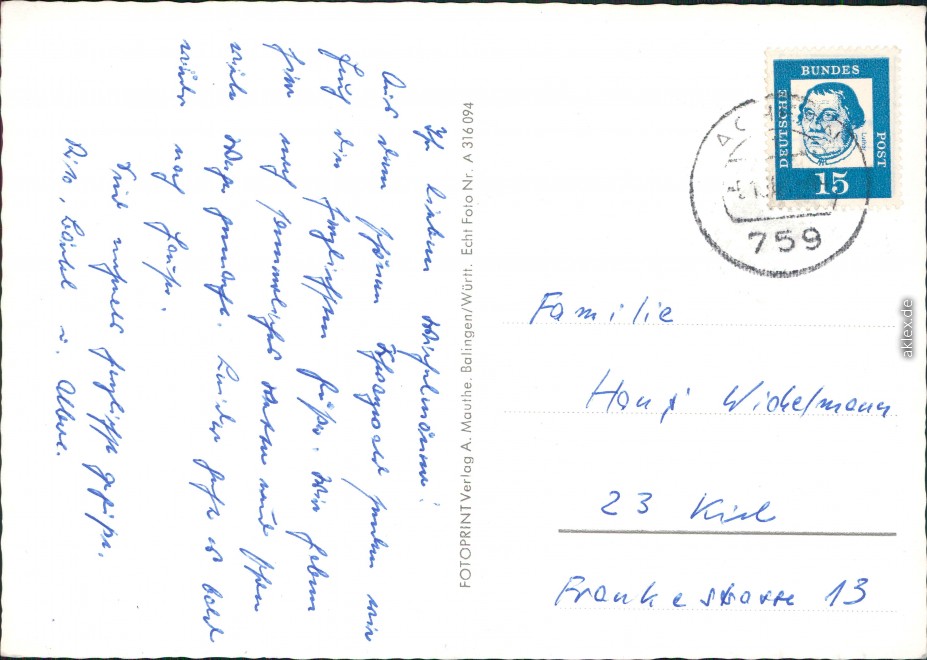 Ihr lieben Wichelmänner!
Aus dem schönen Schwarzwald senden wir
Euch die herzlichsten Grüße. Wir haben
hier noch sommerliches Wetter und schon
viele Wege gemacht. Leider geht es bald
wieder nach Hause.
Seid nochmals herzlichst gegrüßt.
u.
FOTOPRINT Verlag A. Mauthe. Balingen/Württ. Echt Foto Nr. A 316 094
DEUTSCHE
BUNDES
POST
15
759
Familie
Hansj. Wichelmann
23 Kiel
Frankestrasse 13
aklex.de